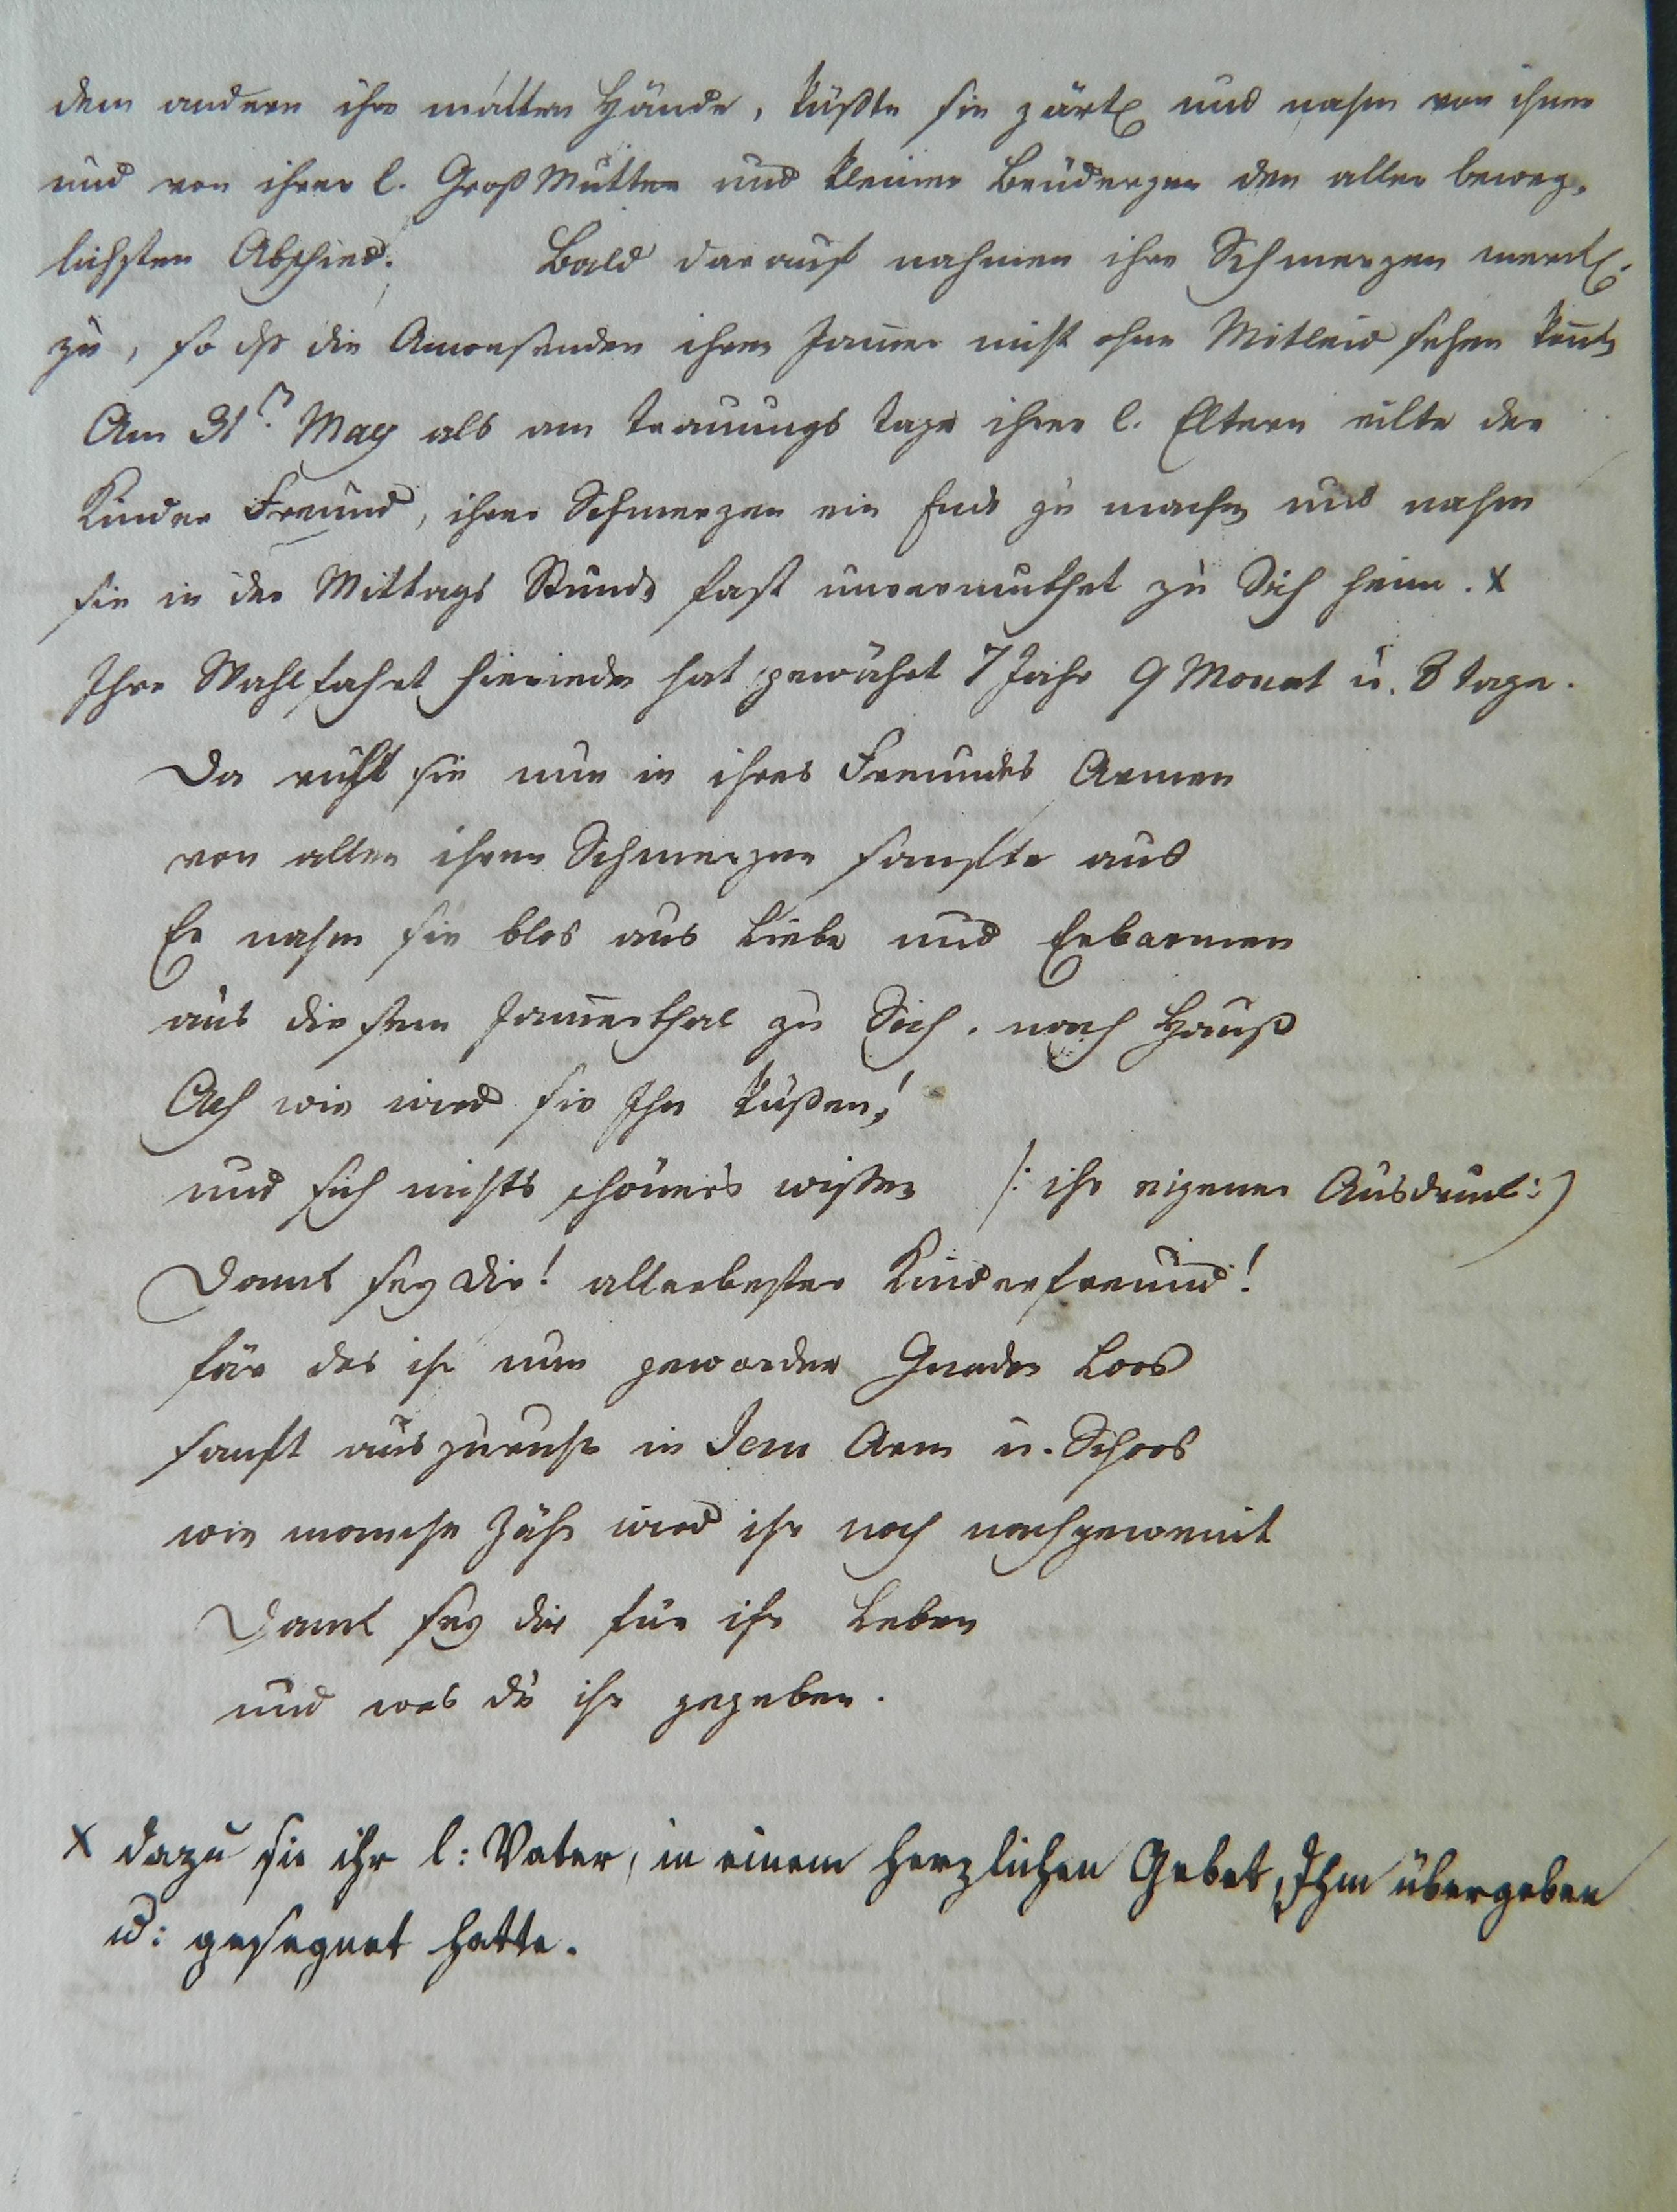 dem andern ihre matten Hände, küßte sie zärtl. und nahm von ihnen
und von ihrer l. Groß Mutter und kleinen Brüdergen den aller beweg-
lichsten Abschied. Bald darauf nahmen ihre Schmerzen merkl.
zu, so dß die Anwesenden ihren Jam̅er nicht ohne Mitleid sehen kon̅ten
Am 31t. May als am Trauungs Tage ihrer l. Eltern eilte der
Kinder Freund, ihren Schmerzen ein Ende zu machen und nahm
sie in der Mittags Stunde fast unvermuthet zu Sich heim. x
Ihre Wahlfahrt hienieden hat gewährt 7 Jahr 9 Monat u. 8 Tage.
Da ruht sie nun in ihres Freundes Armen
von allen ihren Schmerzen sanfte aus
Er nahm sie blos aus Liebe und Erbarmen
aus diesem Jam̅erthal zu Sich. nach Hauß
Ach wie wird sie Ihn küßen!
und sich nichts schöners wißen /: ihr eigener Ausdruck :)
Dank sey dir! allerbester Kinderfreund!
für das ihr nun geworden Gnaden Loos
sanft auszuruhn in Jesu Arm u. Schoos
wie manche Zähr wird ihr noch nachgeweint
Dank sey dir für ihr Leben
und was du ihr gegeben.
x dazu sie ihr l: Vater, in einem herzlichen Gebet, Ihm übergeben
u: gesegnet hatte.